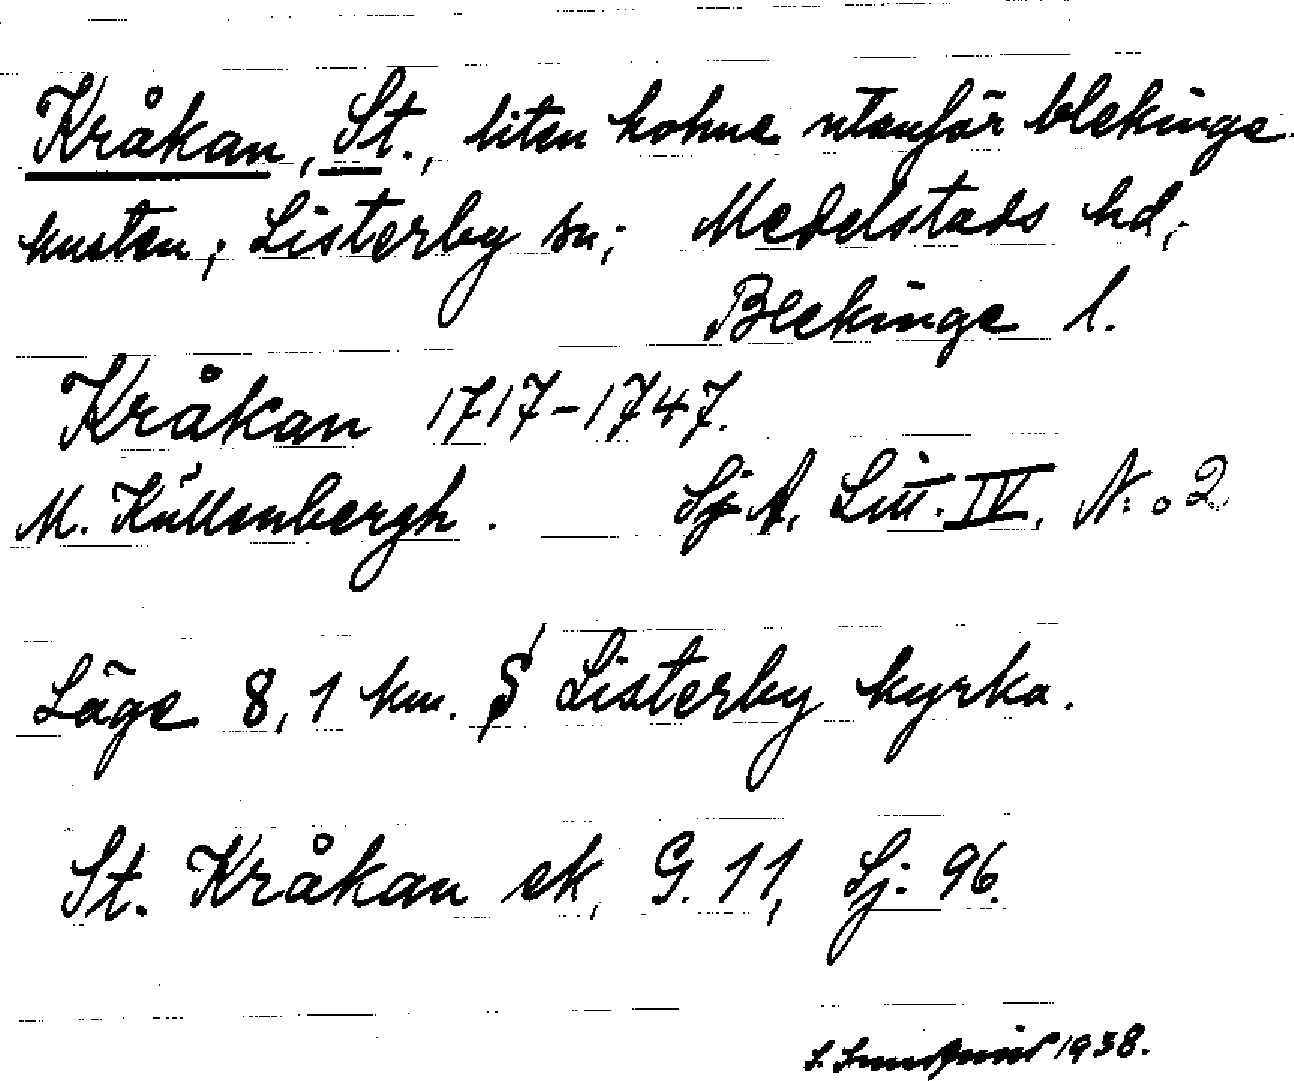 Kråkan, St., liten holme utanför blekinge
kusten; Listerby sn; Medelstads hd;
Blekinge l.
Kråkan 1717-1747.
M. Küllenbergh. Sj A, Litt. IV, N:o 2
Läge 8,1 km. S Listerby kyrka.
St. Kråkan ek, G. 11, Sj. 96.
1938.